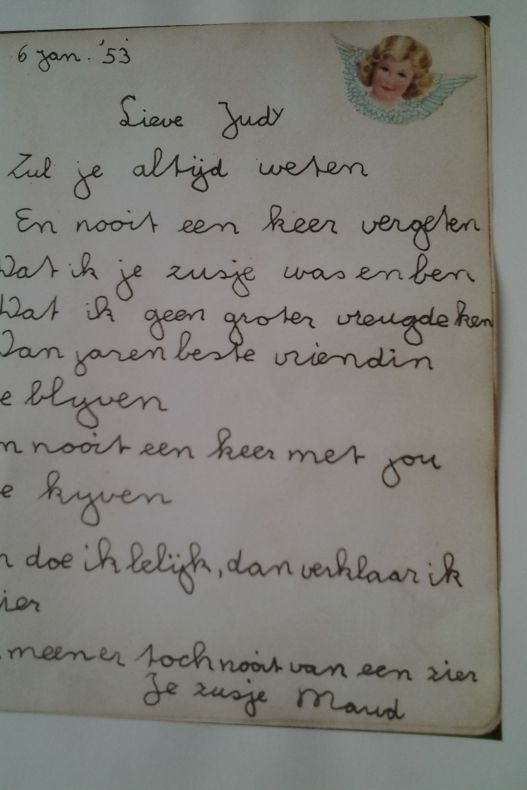 6 jan. '53
Lieve Judy
Zul je altijd weten
En nooit een keer vergeten
Dat ik je zusje was en ben
Dat ik geen groter vreugde ken
Dan jaren beste vriendin
e blyven
n nooit een keer met jou
e kyven
n doe ik lelijk, dan verklaar ik
ier
meen er toch nooit van een zier
Je zusje Maud